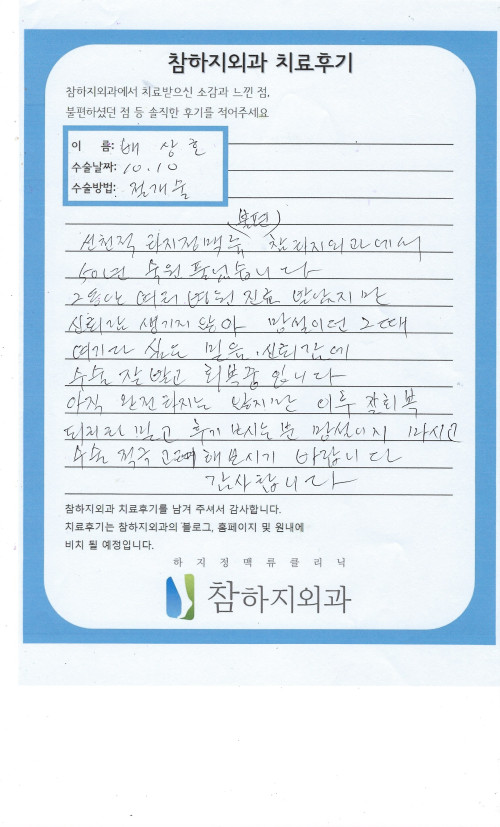 참하지외과 치료후기
참하지외과에서 치료받으신 소감과 느낀 점,
불편하셨던 점 등 솔직한 후기를 적어주세요
이 름: 배 상 호
수술날짜: 10.10
수술방법: 절개술
불편
선천적 하지정맥류 참하지외과에서
50년 숙원 풀었습니다
그동안 여러 병원 진료 받았지만
신뢰감 생기지 않아 망설이던 그때
여기다 싶은 믿음, 신뢰감에
수술 잘받고 회복중 입니다
아직 완전하지는 않지만 이후 잘회복
되리라 믿고 후기 보시는 분 망설이지 마시고
수술 적극 고려해보시기 바랍니다
감사합니다
참하지외과 치료후기를 남겨 주셔서 감사합니다.
치료후기는 참하지외과의 블로그, 홈페이지 및 원내에
비치 될 예정입니다.
하지정맥류클리닉
참하지외과